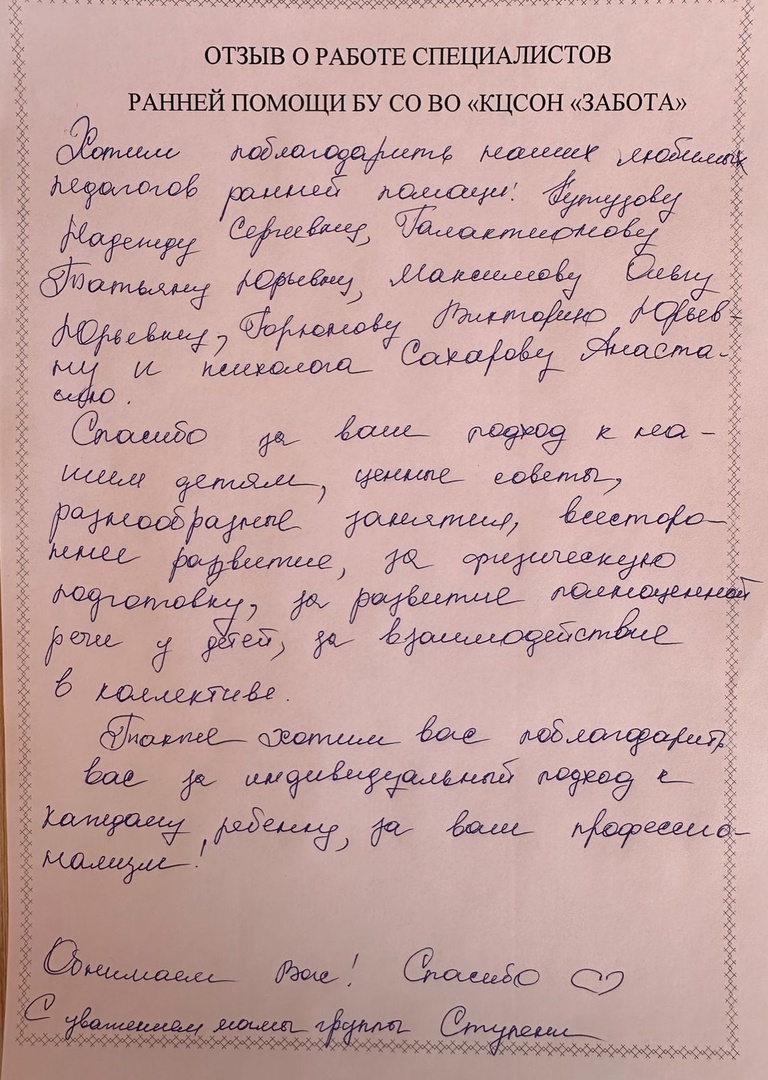 ОТЗЫВ О РАБОТЕ СПЕЦИАЛИСТОВ
РАННЕЙ ПОМОЩИ БУ СО ВО «КЦСОН «ЗАБОТА»
Хотим поблагодарить наших любимых
педагогов ранней помощи! Кутузову
Надежду Сергеевну, Галактионову
Татьяну Юрьевну, Максимову Ольгу
Юрьевну, Горюнову Викторию Юрьев-
ну и психолога Сахарову Анаста-
сию.
Спасибо за ваш подход к на-
шим детям, ценные советы,
разнообразные занятия, всесторо-
ннее развитие, за физическую
подготовку, за развитие полноценной
речи у детей, за взаимодействие
в коллективе.
Также хотим вас поблагодарить
вас за индивидуальный подход к
каждому ребенку, за ваш профессио-
нализм!
Обнимаем Вас! Спасибо ♡
С уважением мамы группы Ступени